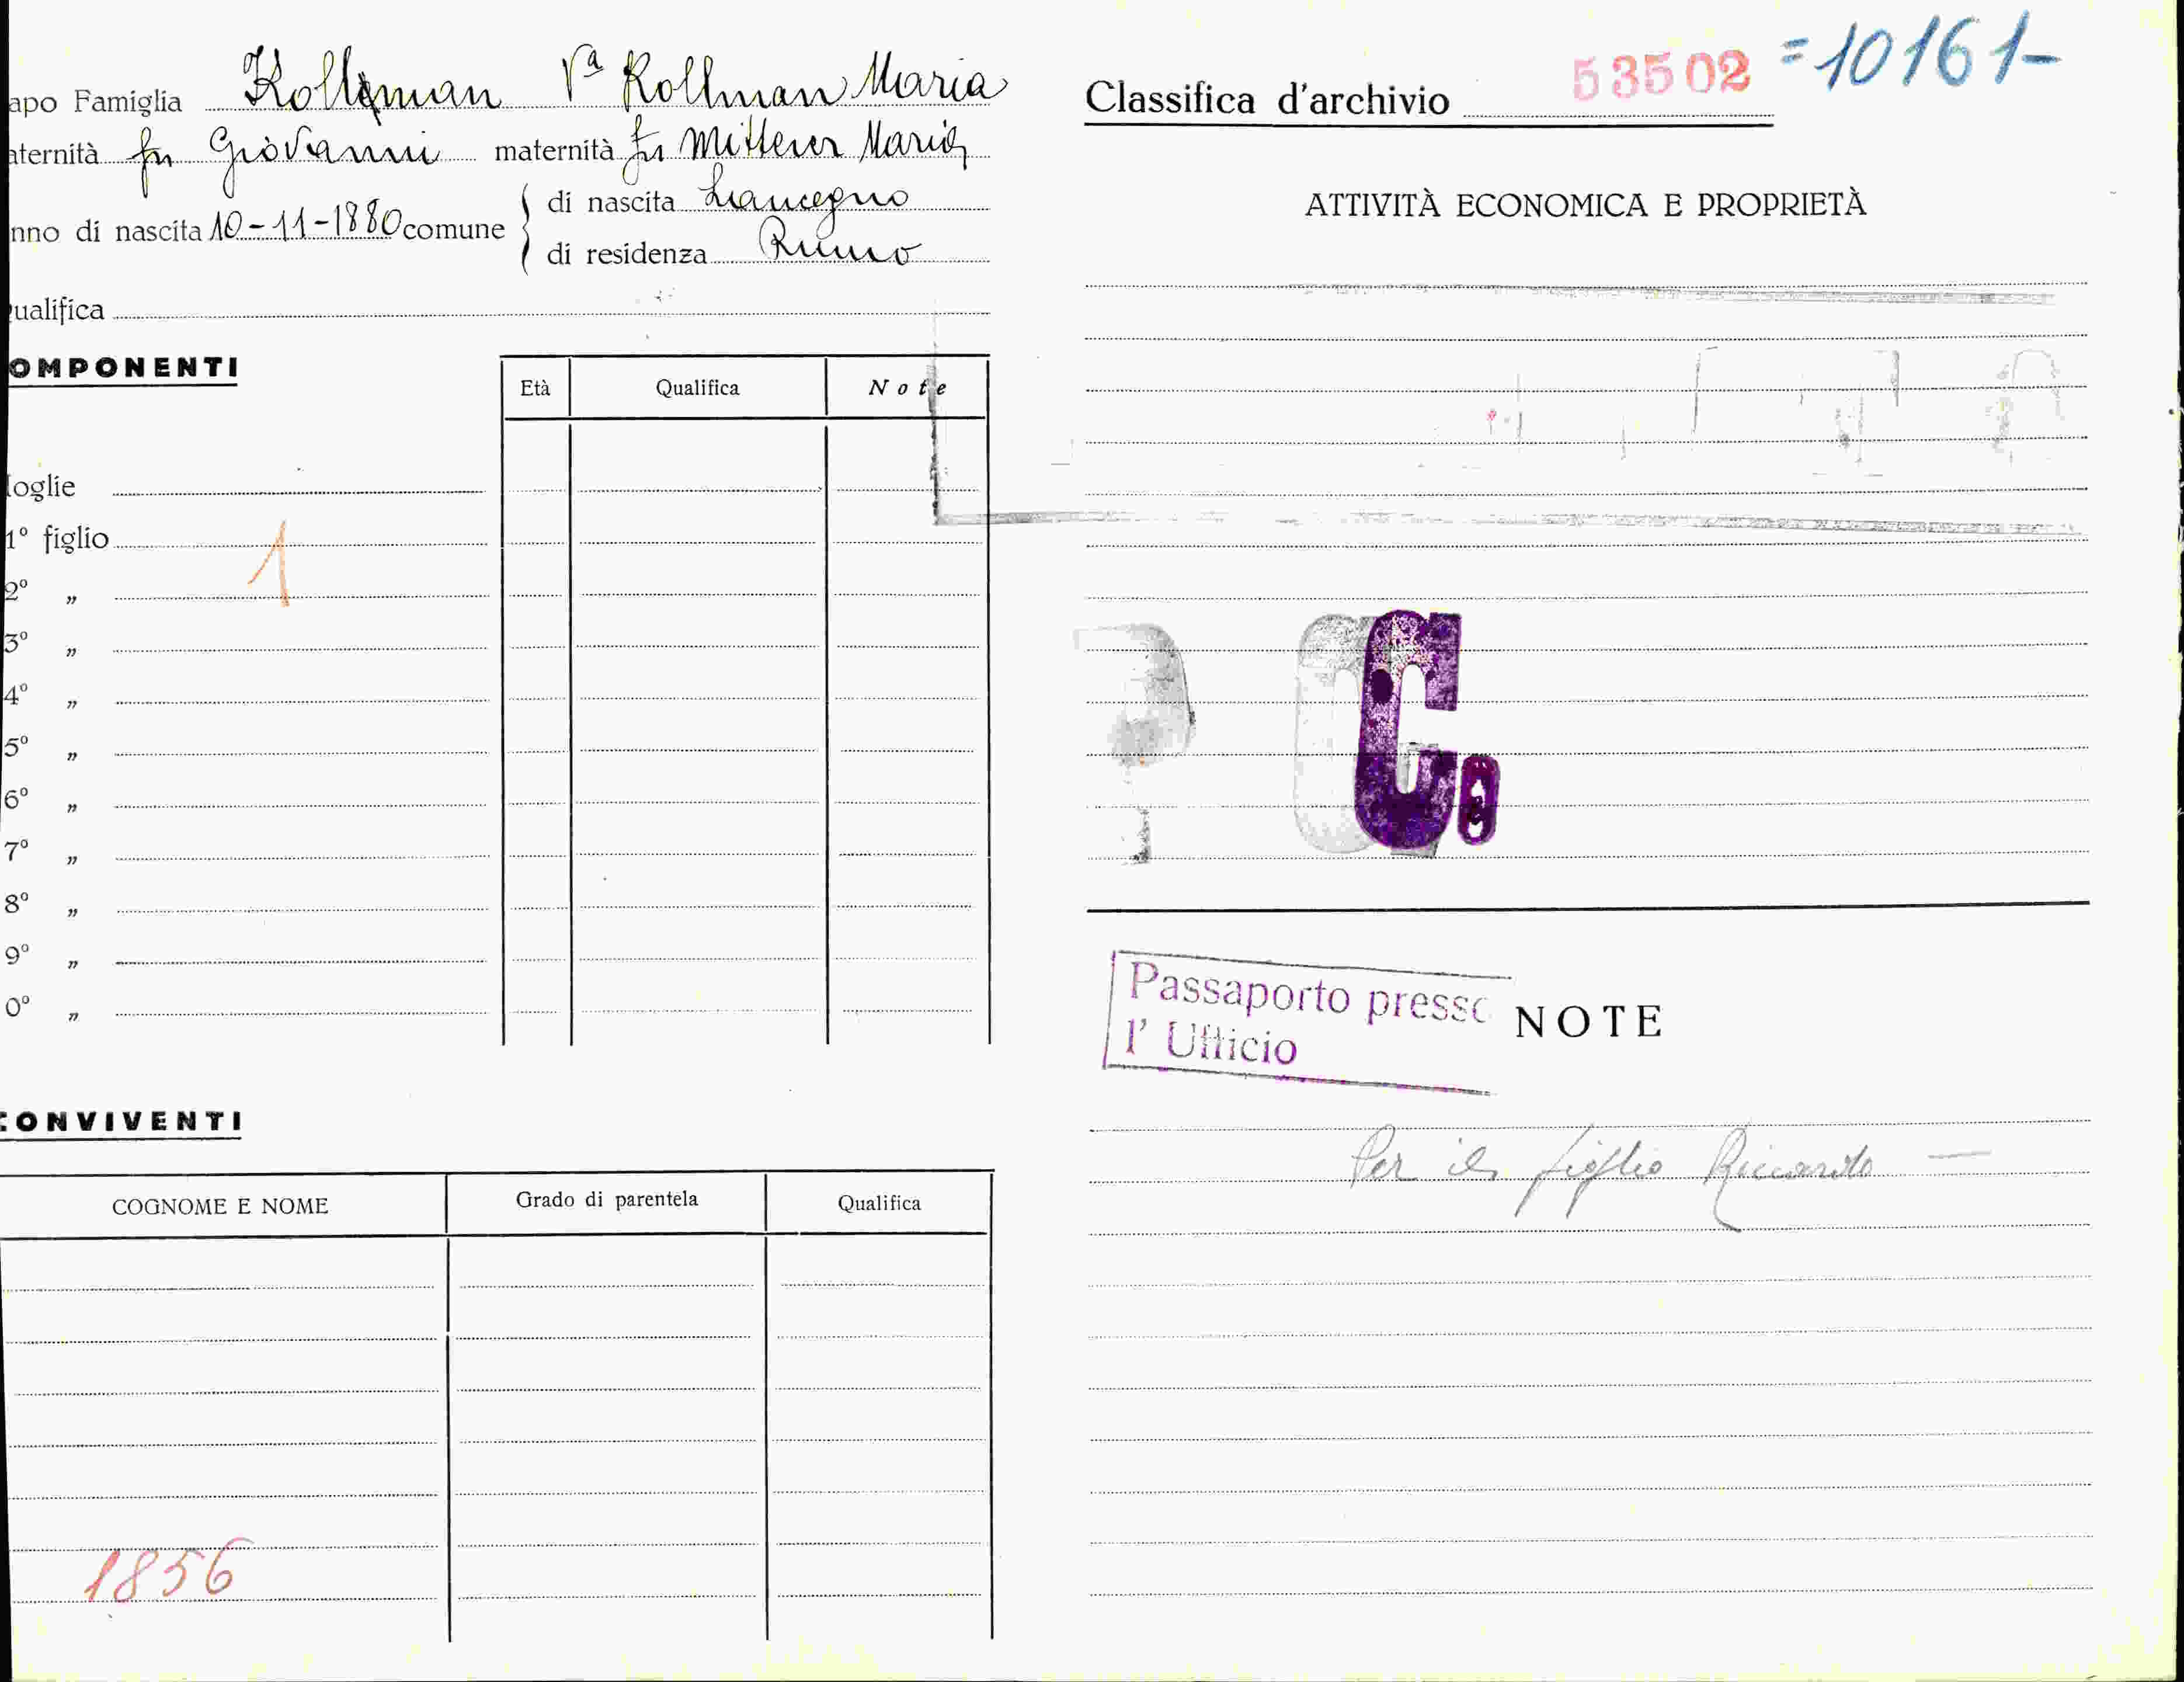 apo Famiglia Kollman Vª Kollman Maria
aternità fu Giovanni maternità fu Mitterer Maria
nno di nascita 10-11-1880 comune
di nascita
di residenza Rumo
ualifica
OMPONENTI
Età Qualifica Note
oglie
1º figlio
1
2º „
3º „
4º „
5º „
6º „
7º „
8º „
9º „
0º „
CONVIVENTI
COGNOME E NOME Grado di parentela Qualifica
1856
Classifica d'archivio 53502 =10161-
ATTIVITÀ ECONOMICA E PROPRIETÀ
C.
Passaporto presso
l' Ufficio
NOTE
Per il figlio Riccardo —